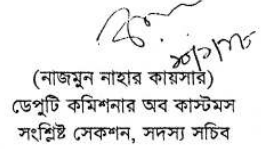 (নাজমুন নাহার কায়সার)
ডেপুটি কমিশনার অব কাস্টমস
সংশ্লিষ্ট সেকশন, সদস্য সচিব